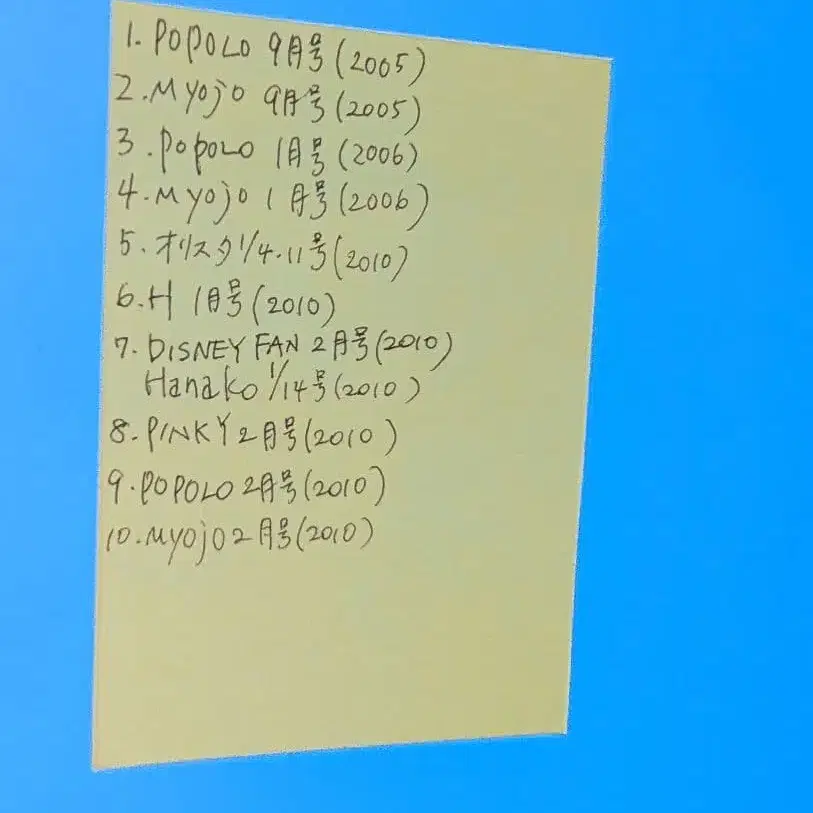 1. POPOLO 9月号(2005)
2. Myojo 9月号(2005)
3. popolo 1月号(2006)
4. Myojo 1月号(2006)
5. オリスタ1/4.11号(2010)
6. H 1月号(2010)
7. DISNEY FAN 2月号(2010)
Hanako 1/14号(2010)
8. PINKY 2月号(2010)
9. POPOLO 2月号(2010)
10. Myojo 2月号(2010)